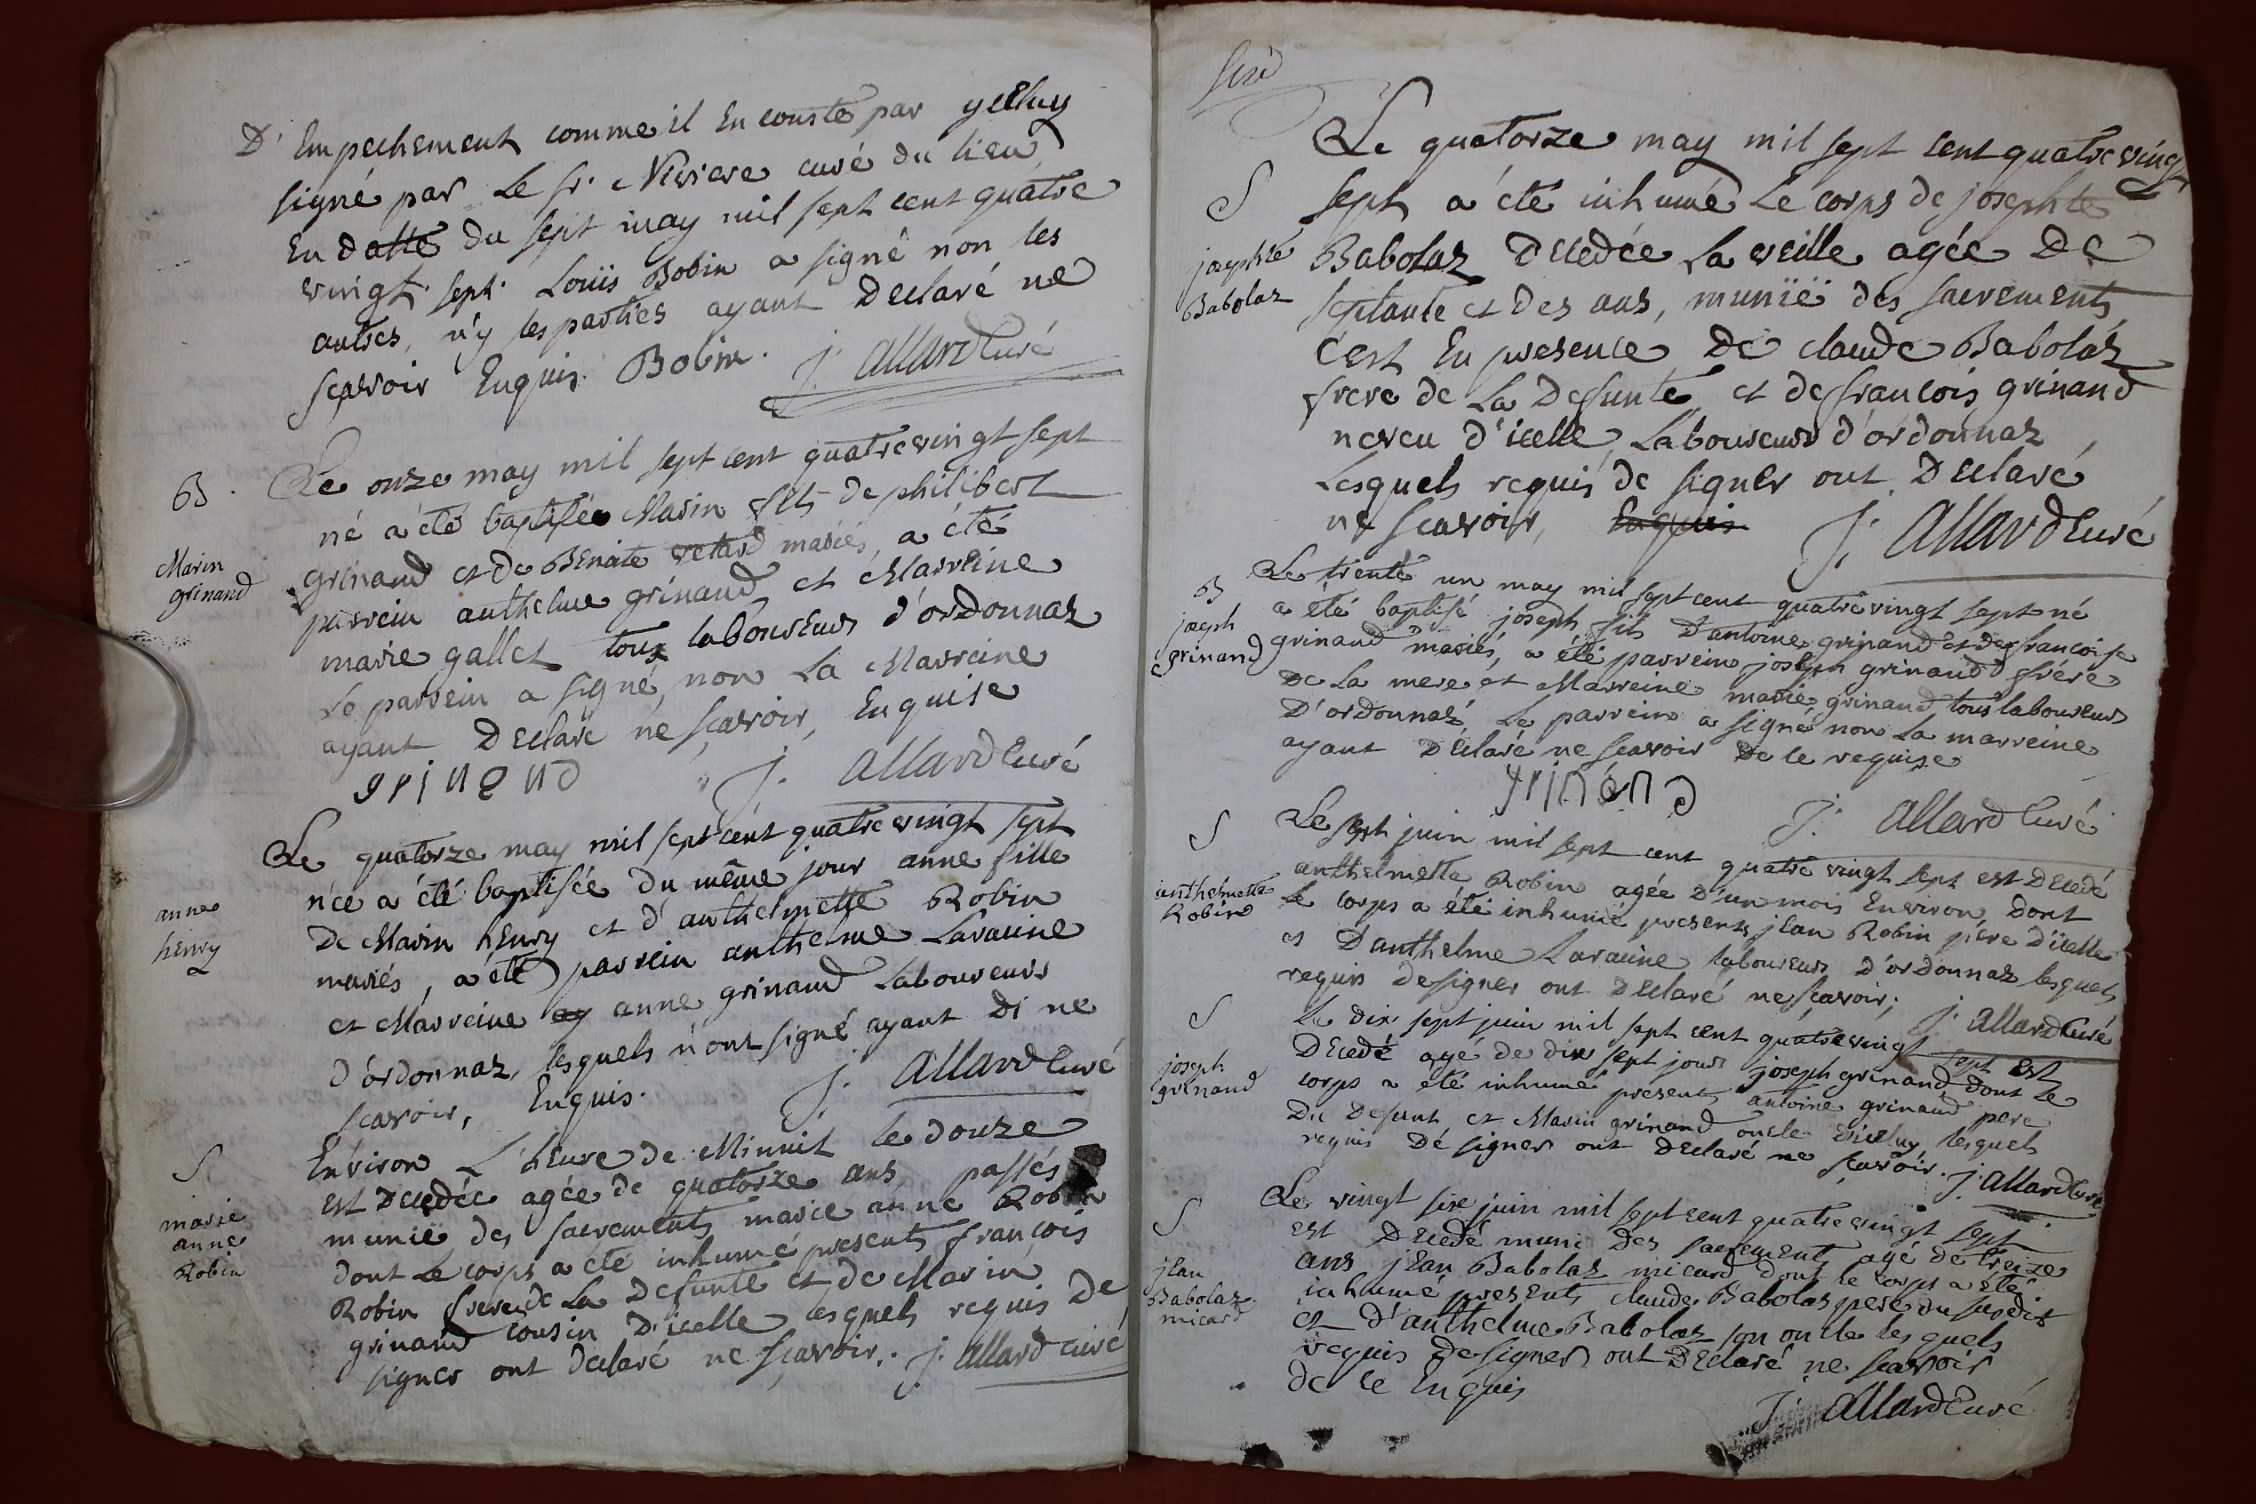 D'Empechement comme il En conste par yceluy
signé par Le sr. Niviere curé du lieu
En datte du sept may mil sept cent quatre
vingt sept. Louïs Bobin a signé non les
autres, n'y les parties ayant Declaré ne
scavoir Enquis. Bobin. J. allard Curé
B.
Marin
grinand
Le onze may mil sept cent quatre vingt sept
né a été baptisée Marin fils de philibert
grinand et de Benoite vetard mariés, a été
parrein anthelme grinand et Marreine
marie gallet tous laboureurs d'ordonnaz
Le parrein a signé, non La Marreine
ayant Declaré ne scavoir, Enquise
grinand J. allard Curé
anne
henry
Le quatorze may mil sept cent quatre vingt sept
née a été baptisée du même jour anne fille
De Marin henry et d'anthelmette Robin
mariés, a été parrein anthelme Laraine
et Marreine anne grinand Laboureurs
d'ordonnaz, lesquels n'ont signé ayant di ne
scavoir, Enquis. J. allard Curé
S
marie
anne
Robin
Environ L'heure de Minnit le douze
est Decedée agée de quatorze ans, passés
munië des sacrements marie anne Robin
dont Le corps a été inhumé presents françois
Robin frere de La Defunte et de Marin
grinand cousin D'icelle lesquels requis De
signer ont declaré ne scavoir. J. allard curé
Le quatorze may mil sept cent quatre vingt
S
josephte
Babolaz
sept a été inhumé Le corps de josephte
Babolaz Decedée La veille agée De
septante et des ans, munïë des sacrements,
c'est En presence De claude Babolaz
frere de La Defunte, et de françois grinand
neveu d'icelle, Laboureurs d'ordonnaz,
Lesquels requis de signer ont Declaré
ne scavoir, Enquis J. allard Curé
B
joseph
grinand
Le trente un may mil sept cent quatre vingt sept né
a été baptisé joseph fils D'antoine grinand et de françoise
grinand mariés, a été parrein joseph grinand frére
De La mere et Marreine marie grinand tous laboureurs
D'ordonnaz Le parrein a signé non La marreine
ayant Déclaré ne scavoir De le requise
grinénd J. allard Curé
S
anthelmette
Robin
Le sept juin mil sept cent quatre vingt sept est Decedé
anthelmette Robin agée D'un mois Environ, Dont
Le corps a été inhumé presents jean Robin pére D'icelle
et D'anthelme Laraine laboureurs D'ordonnaz lesquels
requis De signer ont Declaré ne scavoir; J. allard Curé
S
joseph
grinand
Le dix sept juin mil sept cent quatre vingt sept est
Decedé agé de dix sept jours joseph grinand, dont Le
corps a été inhumé presents antoine grinand pere
Du Defunt et Marin grinand oncle d'iceluy lesquels
requis De signer ont Declaré ne scavoir. J. allard Curé
S
jean
Babolaz
micard
Le vingt six juin mil sept cent quatre vingt sept
est Decedé muni Des sacrements agé de treize
ans jean Babolaz micard dont le corps a été
inhumé presents claude Babolaz pere du susdit
et d'anthelme Babolaz son oncle lesquels
requis De signer ont Declaré ne scavoir
de le Enquis
J. allard Curé